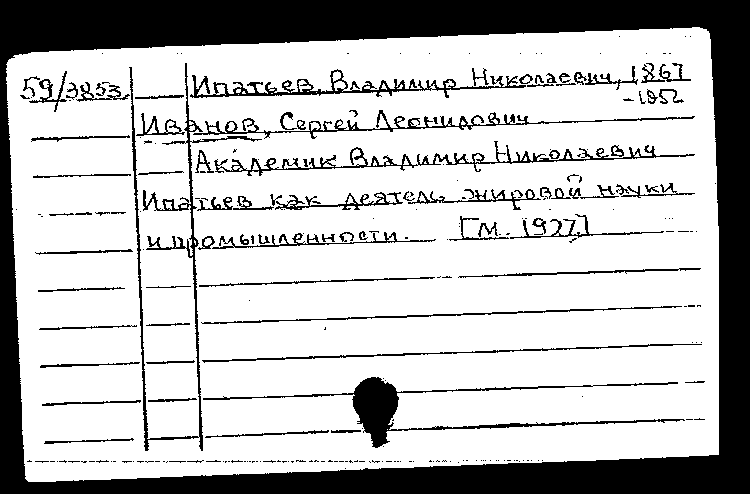 59/3853 Ипатьев, Владимир Николаевич, 1867
-1952
Иванов, Сергей Леонидович
Академик Владимир Николаевич
Ипатьев как деятель жировой науки
и промышленности. [М. 1927]